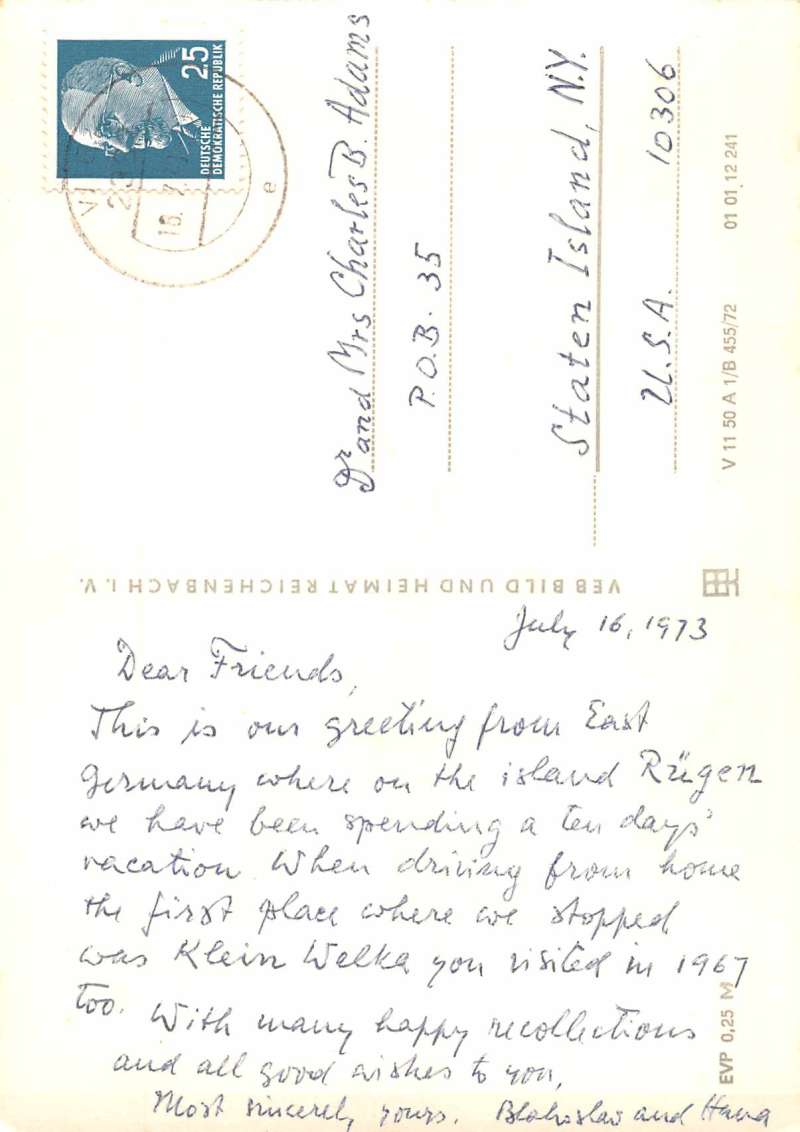 25
DEUTSCHE
DEMOKRATISCHE REPUBLIK
e
Dr and Mrs Charles B. Adams
P.O.B. 35
Staten Island, N.Y.
U.S.A. 10306
V 11 50 A 1/B 455/72 01 01 12 241
VEB BILD UND HEIMAT REICHENBACH I. V.
July 16, 1973
Dear Friends,
This is our greeting from East
Germany where on the island Rügen
we have been spending a ten days'
vacation. When driving from home
the first place where we stopped
was Klein Welka you visited in 1967
too. With many happy recollections
and all good wishes to you,
Most sincerely yours. Blahoslav and Hana
EVP 0,25 M